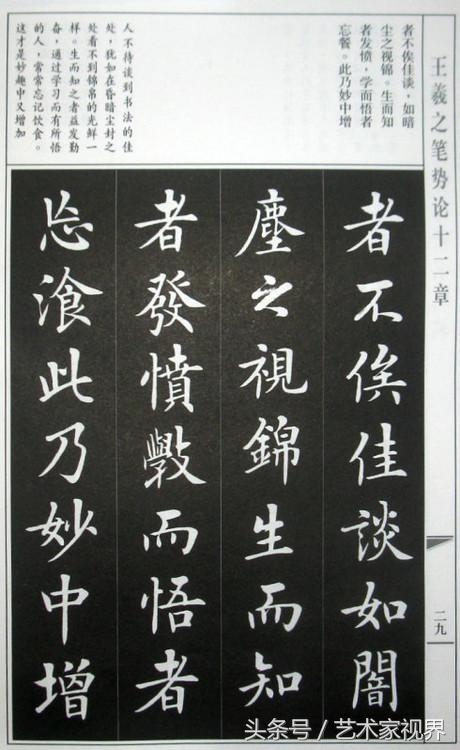 王羲之笔势论十二章
者不俟佳谈，如暗
尘之视锦。生而知
者发愤，学而悟者
忘餐。此乃妙中增
人不待谈到书法的佳
处，犹如在昏暗尘封之
处看不到锦帛的光鲜一
样。生而知之者益发勤
奋，通过学习而有所悟
的人，常常忘记饮食。
这才是妙趣中又增加
者不俟佳談如闇
塵之視錦生而知
者發憤斆而悟者
忘湌此乃妙中增
二九
头条号／艺术家视界